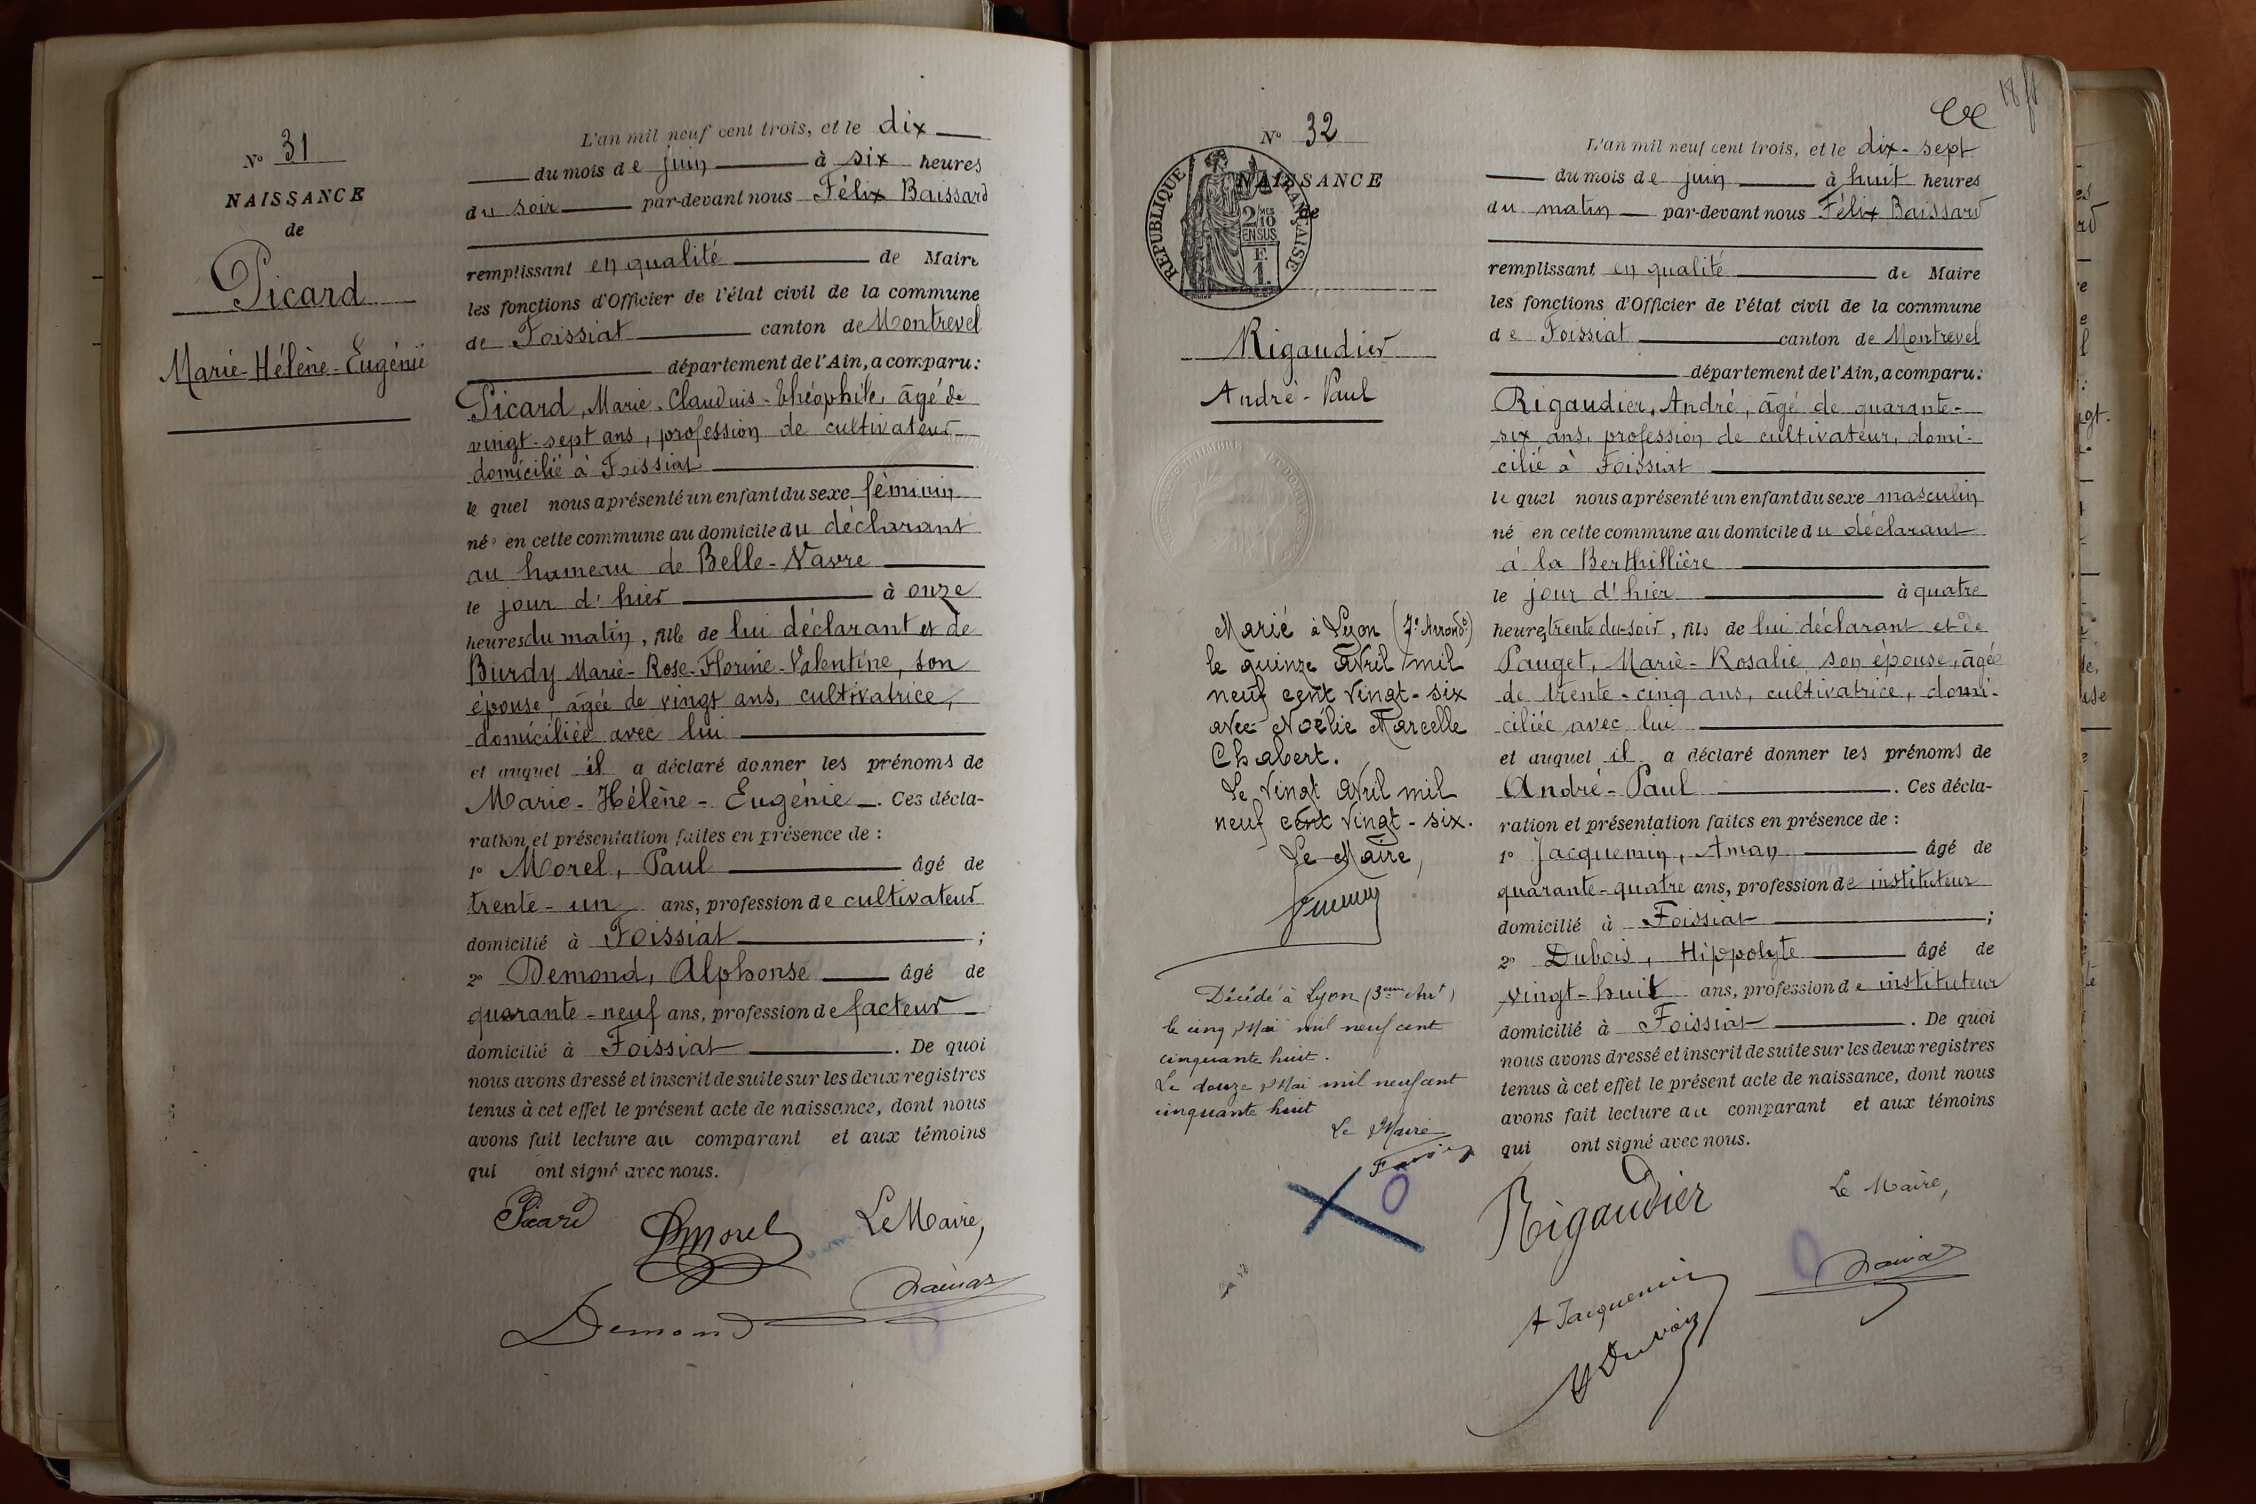 N° 31
NAISSANCE
de
Picard
Marie-Hélène-Eugénie
L'an mil neuf cent trois, et le dix
du mois de juin à six heures
du soir par-devant nous Félix Baissard
remplissant en qualité de Maire
les fonctions d'Officier de l'état civil de la commune
de Foissiat canton de Montrevel
département de l'Ain, a comparu:
Picard, Marie-Claudius-Théophile, âgé de
vingt-sept ans, profession de cultivateur
domicilié à Foissiat
le quel nous a présenté un enfant du sexe féminin
né en cette commune au domicile du déclarant
au hameau de Belle-Vavre
le jour d'hier à onze
heures du matin, fille de lui déclarant et de
Burdy Marie-Rose-Florine-Valentine, son
épouse, âgée de vingt ans, cultivatrice,
domiciliée avec lui
et auquel il a déclaré donner les prénoms de
Marie-Hélène-Eugénie. Ces décla-
ration et présentation faites en présence de :
1° Morel, Paul âgé de
trente-un ans, profession de cultivateur
domicilié à Foissiat ;
2° Demond, Alphonse âgé de
quarante-neuf ans, profession de facteur
domicilié à Foissiat. De quoi
nous avons dressé et inscrit de suite sur les deux registres
tenus à cet effet le présent acte de naissance, dont nous
avons fait lecture au comparant et aux témoins
qui ont signé avec nous.
Picard
Morel
Le Maire,
Demond
18
N° 32
NAISSANCE
de
REPUBLIQUE FRANÇAISE
2/10 MES
EN SUS
F.
1.
Rigaudier
André-Paul
Marié à Lyon (7e Arrondt)
le quinze Avril mil
neuf cent vingt-six
avec Noélie Marcelle
Chabert.
Le vingt Avril mil
neuf cent vingt-six.
Le Maire,
Décédé à Lyon (3eme Arrt)
le cinq Mai mil neuf cent
cinquante huit.
Le douze Mai mil neuf cent
cinquante huit
Le Maire
L'an mil neuf cent trois, et le dix-sept
du mois de juin à huit heures
du matin par-devant nous Félix Baissard
remplissant en qualité de Maire
les fonctions d'Officier de l'état civil de la commune
de Foissiat canton de Montrevel
département de l'Ain, a comparu:
Rigaudier, André, âgé de quarante-
six ans, profession de cultivateur, domi-
cilié à Foissiat
le quel nous a présenté un enfant du sexe masculin
né en cette commune au domicile du déclarant
à la Berthillière
le jour d'hier à quatre
heures trente du soir, fils de lui déclarant et de
Pauget, Marie-Rosalie son épouse, âgée
de trente-cinq ans, cultivatrice, domi-
ciliée avec lui
et auquel il a déclaré donner les prénoms de
André-Paul. Ces décla-
ration et présentation faites en présence de :
1° Jacquemin, Aman âgé de
quarante-quatre ans, profession de instituteur
domicilié à Foissiat ;
2° Dubois, Hippolyte âgé de
vingt-huit ans, profession de instituteur
domicilié à Foissiat. De quoi
nous avons dressé et inscrit de suite sur les deux registres
tenus à cet effet le présent acte de naissance, dont nous
avons fait lecture au comparant et aux témoins
qui ont signé avec nous.
Rigaudier
Le Maire,
A Jacquemin